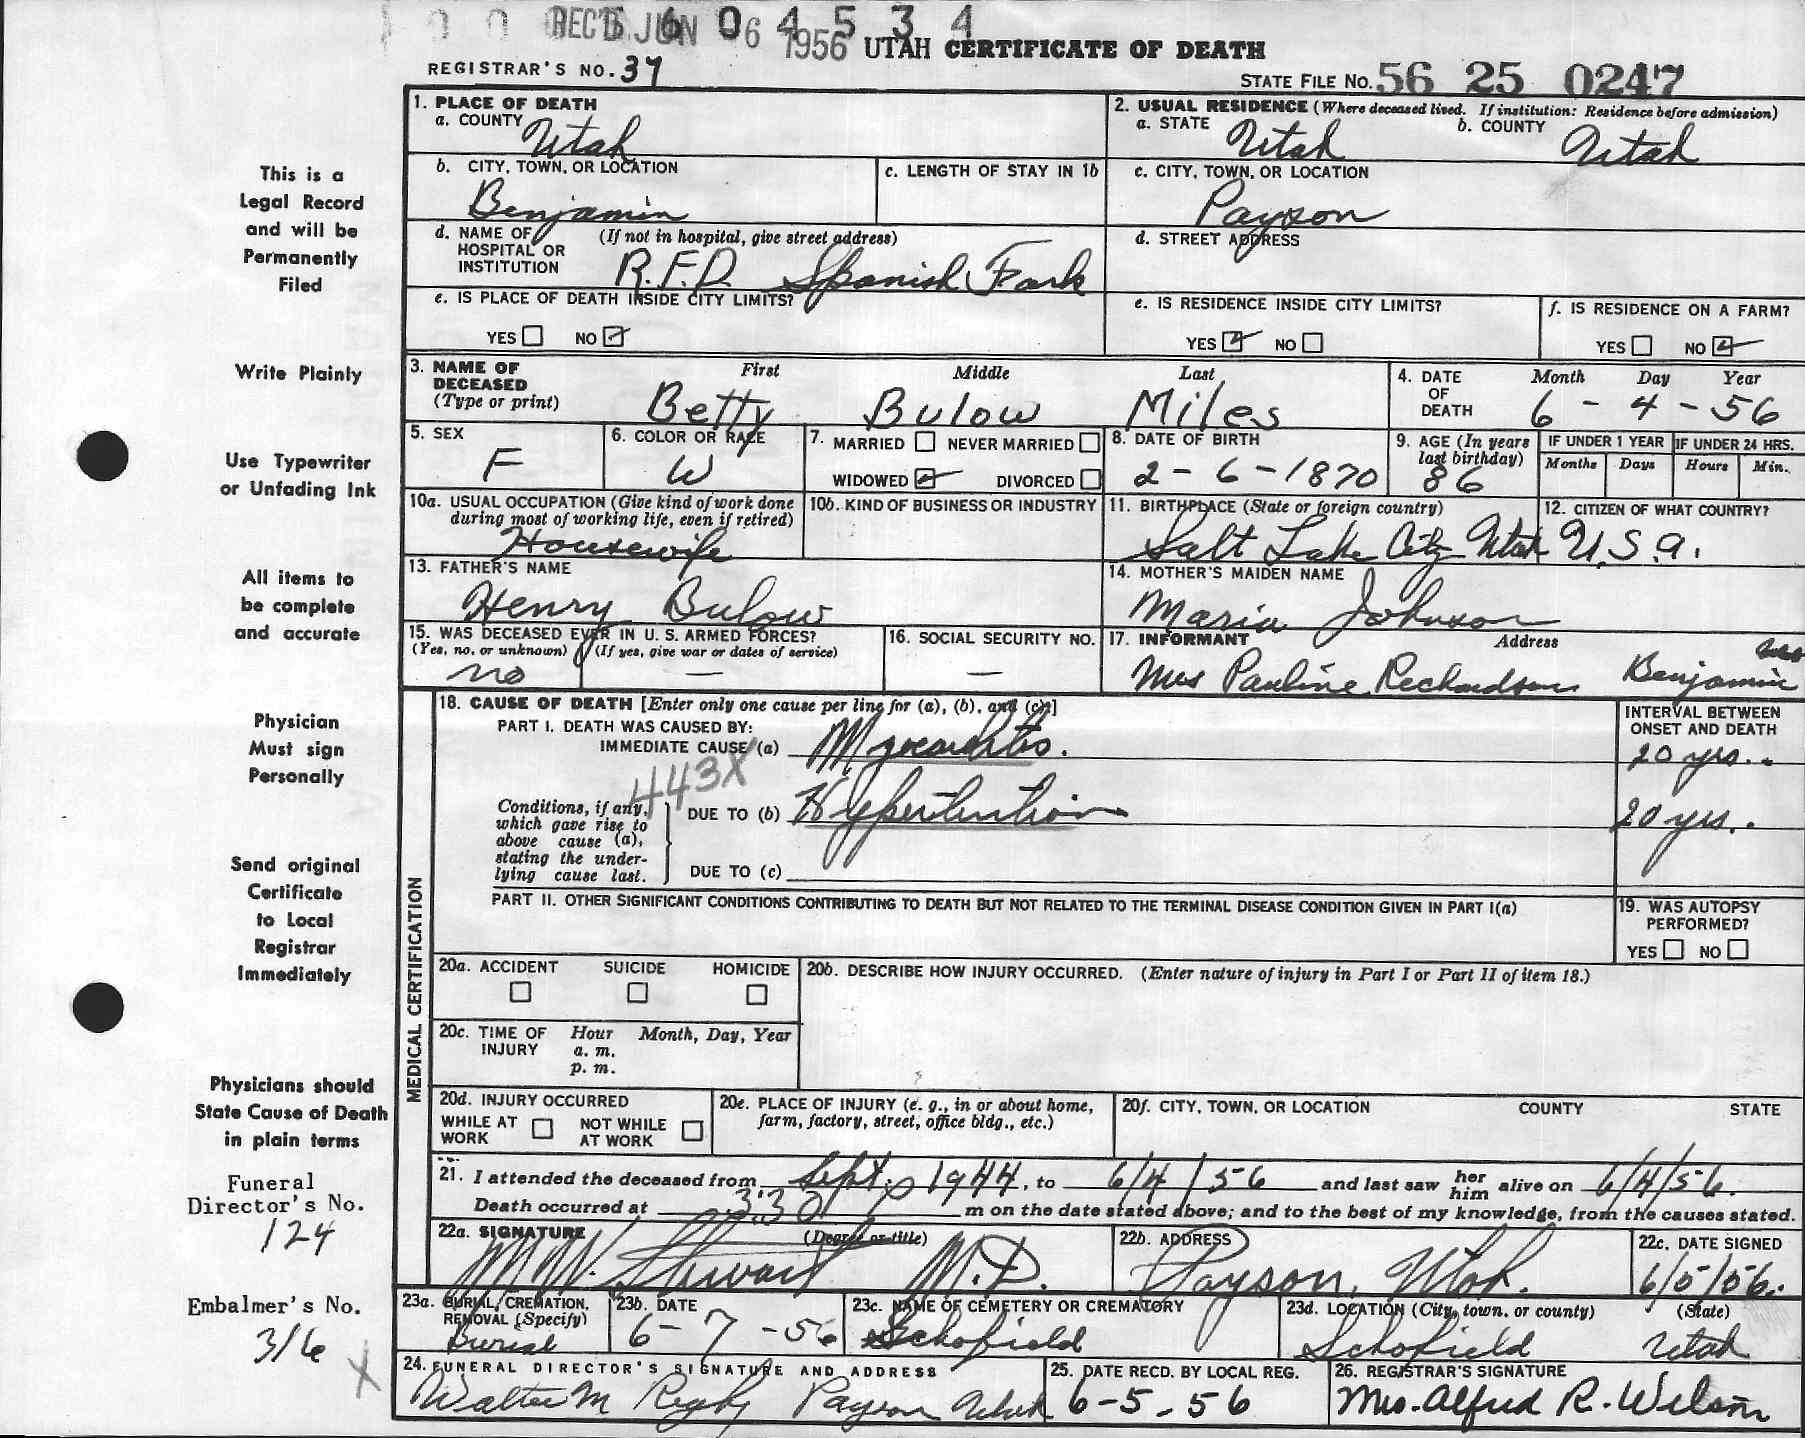 REC'D JUN 06 1956
5 6 0 4 5 3 4
UTAH CERTIFICATE OF DEATH
REGISTRAR'S NO. 37
STATE FILE NO. 56 25 0247
This is a
Legal Record
and will be
Permanently
Filed
Write Plainly
Use Typewriter
or Unfading Ink
All items to
be complete
and accurate
Physician
Must sign
Personally
Send original
Certificate
to Local
Registrar
Immediately
Physicians should
State Cause of Death
in plain terms
Funeral
Director's No.
124
Embalmer's No.
316
X
1. PLACE OF DEATH
a. COUNTY Utah
2. USUAL RESIDENCE (Where deceased lived. If institution: Residence before admission)
a. STATE Utah b. COUNTY Utah
b. CITY, TOWN, OR LOCATION
Benjamin
c. LENGTH OF STAY IN 1b
c. CITY, TOWN, OR LOCATION
Payson
d. NAME OF HOSPITAL OR INSTITUTION (If not in hospital, give street address)
R.F.D. Spanish Fork
d. STREET ADDRESS
e. IS PLACE OF DEATH INSIDE CITY LIMITS?
YES NO
e. IS RESIDENCE INSIDE CITY LIMITS?
YES NO
f. IS RESIDENCE ON A FARM?
YES NO
3. NAME OF DECEASED (Type or print) First Middle Last
Betty Bulow Miles
4. DATE OF DEATH Month Day Year
6 - 4 - 56
5. SEX
F
6. COLOR OR RACE
W
7. MARRIED NEVER MARRIED
WIDOWED DIVORCED
8. DATE OF BIRTH
2 - 6 - 1870
9. AGE (In years last birthday)
86
IF UNDER 1 YEAR IF UNDER 24 HRS.
Months Days Hours Min.
10a. USUAL OCCUPATION (Give kind of work done during most of working life, even if retired)
Housewife
10b. KIND OF BUSINESS OR INDUSTRY
11. BIRTHPLACE (State or foreign country)
Salt Lake City Utah
12. CITIZEN OF WHAT COUNTRY?
U.S.A.
13. FATHER'S NAME
Henry Bulow
14. MOTHER'S MAIDEN NAME
Maria Johnson
15. WAS DECEASED EVER IN U. S. ARMED FORCES?
(Yes, no, or unknown) (If yes, give war or dates of service)
no —
16. SOCIAL SECURITY NO.
—
17. INFORMANT Address
Mrs Pauline Richardson Benjamin Utah
MEDICAL CERTIFICATION
18. CAUSE OF DEATH [Enter only one cause per line for (a), (b), and (c).]
INTERVAL BETWEEN ONSET AND DEATH
PART I. DEATH WAS CAUSED BY:
IMMEDIATE CAUSE (a) Myocarditis. 20 yrs.
443X
Conditions, if any, which gave rise to above cause (a), stating the underlying cause last.
DUE TO (b) Hypertention 20 yrs.
DUE TO (c)
PART II. OTHER SIGNIFICANT CONDITIONS CONTRIBUTING TO DEATH BUT NOT RELATED TO THE TERMINAL DISEASE CONDITION GIVEN IN PART I(a)
19. WAS AUTOPSY PERFORMED?
YES NO
20a. ACCIDENT SUICIDE HOMICIDE
20b. DESCRIBE HOW INJURY OCCURRED. (Enter nature of injury in Part I or Part II of item 18.)
20c. TIME OF INJURY Hour Month, Day, Year
a. m.
p. m.
20d. INJURY OCCURRED
WHILE AT WORK NOT WHILE AT WORK
20e. PLACE OF INJURY (e. g., in or about home, farm, factory, street, office bldg., etc.)
20f. CITY, TOWN, OR LOCATION COUNTY STATE
21. I attended the deceased from Sept. 1944, to 6/4/56 and last saw her him alive on 6/4/56.
Death occurred at 3:30 p m on the date stated above; and to the best of my knowledge, from the causes stated.
22a. SIGNATURE (Degree or title)
M.D.
22b. ADDRESS
Payson, Utah.
22c. DATE SIGNED
6/5/56.
23a. BURIAL, CREMATION, REMOVAL (Specify)
Burial
23b. DATE
6-7-56
23c. NAME OF CEMETERY OR CREMATORY
Schofield
23d. LOCATION (City, town, or county) (State)
Schofield Utah
24. FUNERAL DIRECTOR'S SIGNATURE AND ADDRESS
Walter M Rigby Payson Utah
25. DATE RECD. BY LOCAL REG.
6-5-56
26. REGISTRAR'S SIGNATURE
Mrs. Alfred R. Wilson